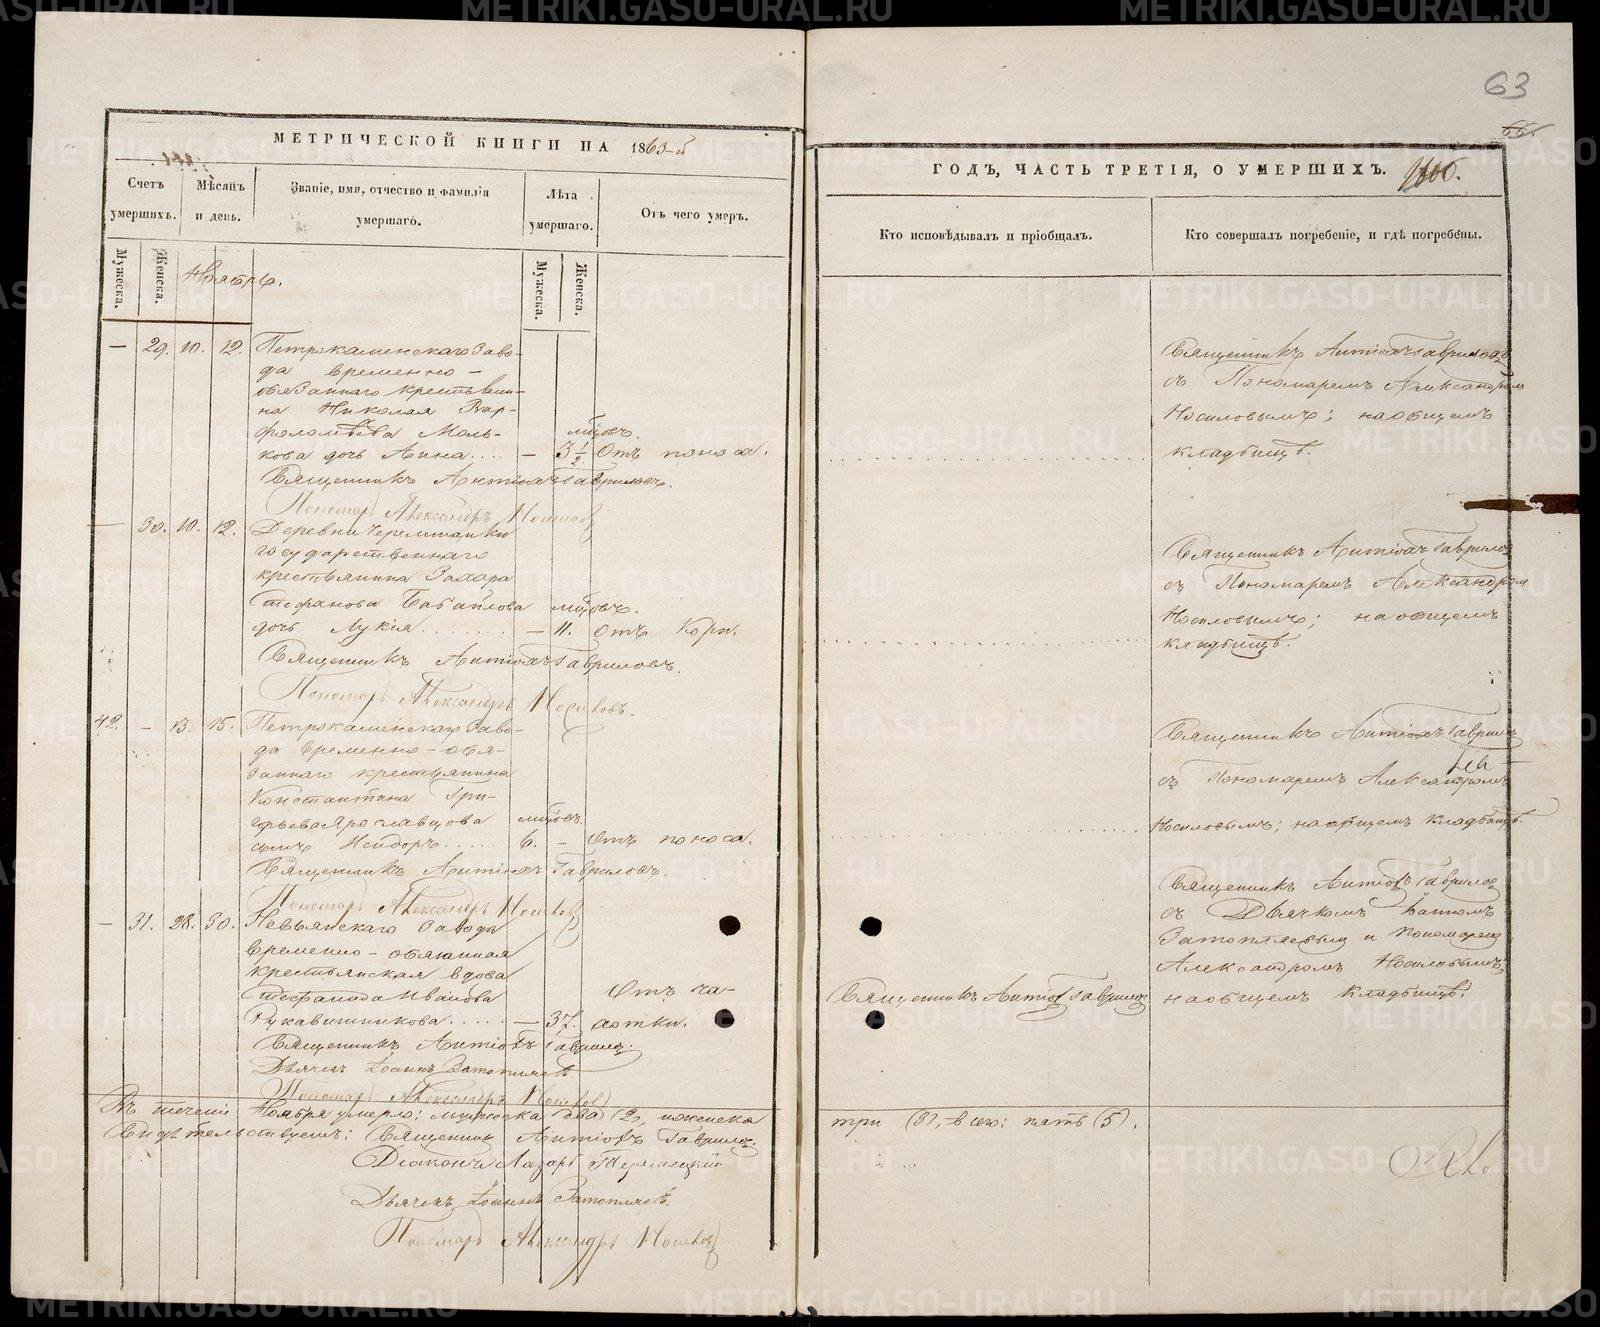 63
66.
МЕТРИЧЕСКОЙ КНИГИ НА 1863-й
ГОДЪ, ЧАСТЬ ТРЕТІЯ, О УМЕРШИХЪ.
Счетъ умершихъ.
Мѣсяцъ и день.
Званіе, имя, отчество и фамилія умершаго.
Лѣта умершаго.
Отъ чего умеръ.
Кто исповѣдывалъ и пріобщалъ.
Кто совершалъ погребеніе, и гдѣ погребены.
Мужеска.
Женска.
Ноябрь.
Мужеска.
Женска.
— 29. 10. 12. Петрокаменскаго Заво-
да временно-
обязаннаго крестьяни-
на Николая Вар-
фоломѣева Маль- мцовъ.
кова дочь Анна.... — 3 1/2 Отъ поноса.
Священникъ Антіохъ Гавриловъ.
Пономарь Александръ Носиловъ
Священникъ Антіохъ Гавриловъ
съ Пономаремъ Александромъ
Носиловымъ; на общемъ
кладбищѣ.
— 30. 10. 12. Деревни Черемшанки
государственнаго
крестьянина Захара
Стефанова Бабайлова мцовъ.
дочь Лукія........ — 11. Отъ Кори.
Священникъ Антіохъ Гавриловъ.
Пономарь Александръ Носиловъ.
Священникъ Антіохъ Гавриловъ
съ Пономаремъ Александромъ
Носиловымъ; на общемъ
кладбищѣ.
42. — 13. 15. Петрокаменскаго Заво-
да временно-обя-
заннаго крестьянина
Константина Гри-
горьева Ярославцова мцовъ.
сынъ Нейдоръ..... 6. — Отъ поноса.
Священникъ Антіохъ Гавриловъ.
Пономарь Александръ Носиловъ
Священникъ Антіохъ Гавриловъ
съ Пономаремъ Александромъ
Носиловымъ; на общемъ кладбищѣ.
— 31. 28. 30. Невьянскаго Завода
временно-обязанная
крестьянская вдова
Стефанида Иванова Отъ ча-
Рукавишникова..... — 37. хотки.
Священникъ Антіохъ Гавриловъ.
Дьячекъ Іоаннъ Затопляевъ
Пономарь Александръ Носиловъ
Священникъ Антіохъ Гавриловъ
Священникъ Антіохъ Гавриловъ
съ Дьячкомъ Іоанномъ
Затопляевымъ и Пономаремъ
Александромъ Носиловымъ,
на общемъ кладбищѣ.
Въ теченіи Ноября умерло: мужеска два (2), и женска
три (3), всего: пять (5).
Свидѣтельствуемъ: Священникъ Антіохъ Гавриловъ.
Діаконъ Лазарь
Дьячекъ Іоаннъ Затопляевъ.
Пономарь Александръ Носиловъ
METRIKI.GASO-URAL.RU